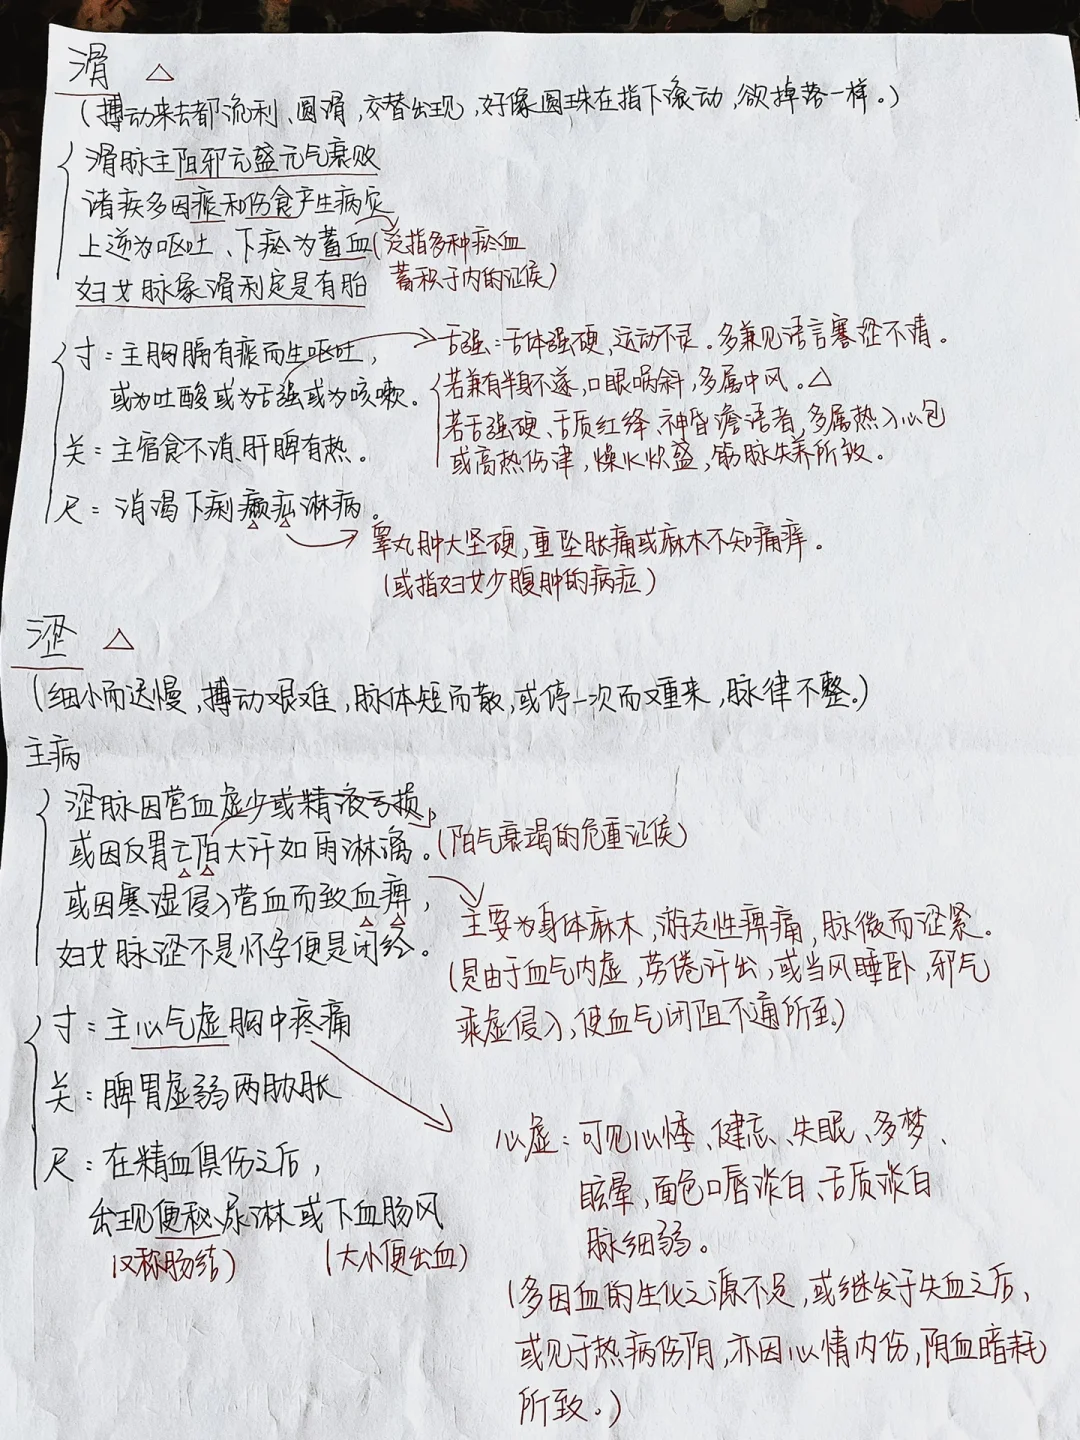 滑 △
(搏动来去都流利、圆滑，交替出现，好像圆珠在指下滚动，欲掉落一样。)
滑脉主阳邪亢盛元气衰败
诸疾多因痰和伤食产生病灾
上逆为呕吐、下瘀为蓄血(泛指多种瘀血
蓄积于内的证候)
妇女脉象滑利定是有胎
寸：主胸膈有痰而生呕吐，
或为吐酸或为舌强或为咳嗽。
舌强：舌体强硬，运动不灵。多兼见语言蹇涩不清。
若兼有半身不遂，口眼㖞斜，多属中风。△
若舌强硬、舌质红绛、神昏谵语者，多属热入心包
或高热伤津，燥火炽盛，筋脉失养所致。
关：主宿食不消肝脾有热。
尺：消渴下痢癫疝淋病。
睾丸肿大坚硬，重坠胀痛或麻木不知痛痒。
(或指妇女少腹肿的病症)
涩 △
(细小而迟慢，搏动艰难，脉体短而散，或停一次而又重来，脉律不整。)
主病
涩脉因营血虚少或精液亏损，
或因反胃亡阳大汗如雨淋漓。(阳气衰竭的危重证候)
或因寒湿侵入营血而致血痹，
妇女脉涩不是怀孕便是闭经。
主要为身体麻木，游走性痹痛，脉微而涩紧。
(是由于血气内虚，劳倦汗出，或当风睡卧，邪气
乘虚侵入，使血气闭阻不通所至。)
寸：主心气虚胸中疼痛
关：脾胃虚弱两胁胀
尺：在精血俱伤之后，
出现便秘、尿淋或下血肠风
(又称肠结)
(大小便出血)
心虚：可见心悸、健忘、失眠、多梦、
眩晕，面色口唇淡白、舌质淡白
脉细弱。
(多因血的生化之源不足，或继发于失血之后、
或见于热病伤阴，亦因心情内伤，阴血暗耗
所致。)